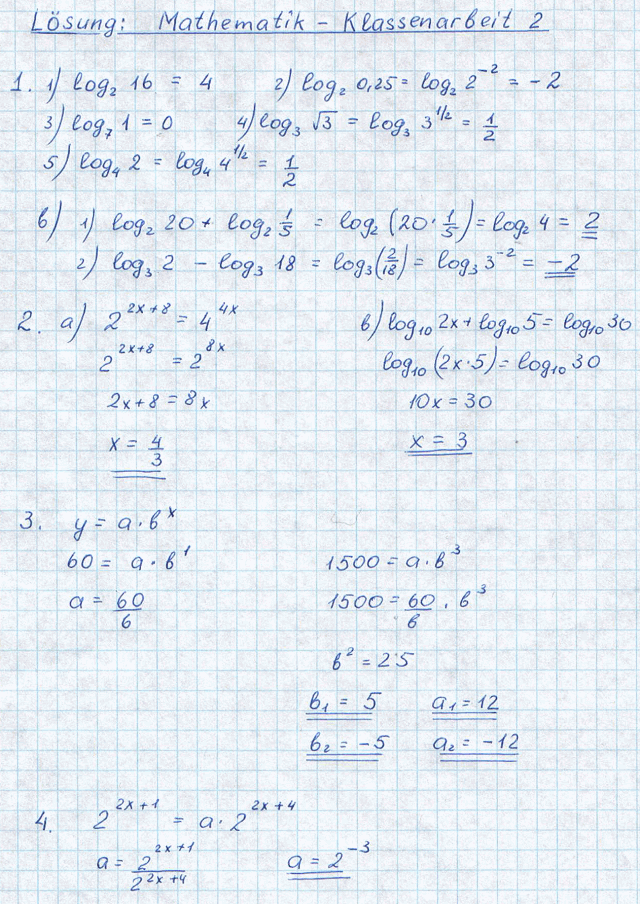 Lösung: Mathematik - Klassenarbeit 2
1. 1) log₂ 16 = 4 2) log₂ 0,25 = log₂ 2⁻² = -2
3) log₇ 1 = 0 4) log₃ √3 = log₃ 3^1/2 = 1/2
5) log₄ 2 = log₄ 4^1/2 = 1/2
b) 1) log₂ 20 + log₂ 1/5 = log₂ (20·1/5) = log₂ 4 = 2
2) log₃ 2 - log₃ 18 = log₃(2/18) = log₃ 3⁻² = -2
2. a) 2^2x+8 = 4^4x b) log₁₀ 2x + log₁₀ 5 = log₁₀ 30
2^2x+8 = 2^8x log₁₀ (2x·5) = log₁₀ 30
2x+8 = 8x 10x = 30
x = 4/3 x = 3
3. y = a·b^x
60 = a·b^1 1500 = a·b³
a = 60/b 1500 = 60/b · b³
b² = 25
b₁ = 5 a₁ = 12
b₂ = -5 a₂ = -12
4. 2^2x+1 = a·2^2x+4
a = 2^2x+1/2^2x+4 a = 2⁻³